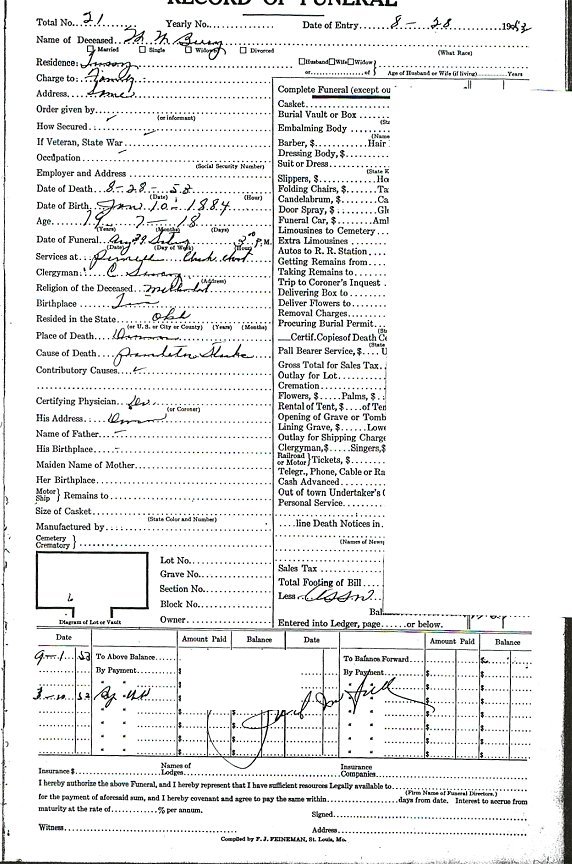 RECORD OF FUNERAL
Total No. 21 Yearly No. Date of Entry 8 - 28 - 1953
Name of Deceased M. M. Berry
Married Single Widow Divorced (What Race)
Residence:
Husband Wife Widow
or of Age of Husband or Wife (if living) Years
Charge to: Family
Address Same
Order given by
(or informant)
How Secured
If Veteran, State War
Occupation
(Social Security Number)
Employer and Address
Date of Death 8-28-53
(Date) (Hour)
Date of Birth Jan 10 - 1884
Age 7 18
(Years) (Months) (Days)
Date of Funeral Aug 29 3 P.M.
(Date) (Day of Week) (Hour)
Services at Church
Clergyman: C.
(Address)
Religion of the Deceased Methodist
Birthplace
Resided in the State Okla
(or U. S. or City or County) (Years) (Months)
Place of Death
Cause of Death
Contributory Causes
Certifying Physician
(or Coroner)
His Address
Name of Father
His Birthplace
Maiden Name of Mother
Her Birthplace
Motor
Ship } Remains to
Size of Casket
(State Color and Number)
Manufactured by
Cemetery
Crematory }
Lot No.
Grave No.
Section No.
Block No.
Owner
Diagram of Lot or Vault
Complete Funeral (except ou
Casket
Burial Vault or Box
Embalming Body
(Name
Barber, $ Hair
Dressing Body, $
Suit or Dress
(State K
Slippers, $ Ho
Folding Chairs, $ Ta
Candelabrum, $ Ca
Door Spray, $ Gl
Funeral Car, $ Aml
Limousines to Cemetery
Extra Limousines
Autos to R. R. Station
Getting Remains from
Taking Remains to
Trip to Coroner's Inquest
Delivering Box to
Deliver Flowers to
Removal Charges
Procuring Burial Permit
Certif. Copies of Death Ce
(State
Pall Bearer Service, $ U
Gross Total for Sales Tax
Outlay for Lot
Cremation
Flowers, $ Palms, $
Rental of Tent, $ of Ten
Opening of Grave or Tomb
Lining Grave, $ Low
Outlay for Shipping Charge
Clergyman, $ Singers, $
Railroad
or Motor } Tickets, $
Telegr., Phone, Cable or Ra
Cash Advanced
Out of town Undertaker's C
Personal Service
line Death Notices in
(Names of News
Sales Tax
Total Footing of Bill
Less Assn
Bal
Entered into Ledger, page or below.
Date Amount Paid Balance Date Amount Paid Balance
9-1 53 To Above Balance $ To Balance Forward $
By Payment $ By Payment $
53 By $ " " $
" " $ " " $
" " $ " " $
" " $ " " $
" " $ " " $
Insurance $ Names of Lodges Insurance Companies
I hereby authorize the above Funeral, and I hereby represent that I have sufficient resources Legally available to
(Firm Name of Funeral Directors.)
for the payment of aforesaid sum, and I hereby covenant and agree to pay the same within days from date. Interest to accrue from
maturity at the rate of % per annum. Signed
Witness Address
Compiled by F. J. FEINEMAN, St. Louis, Mo.